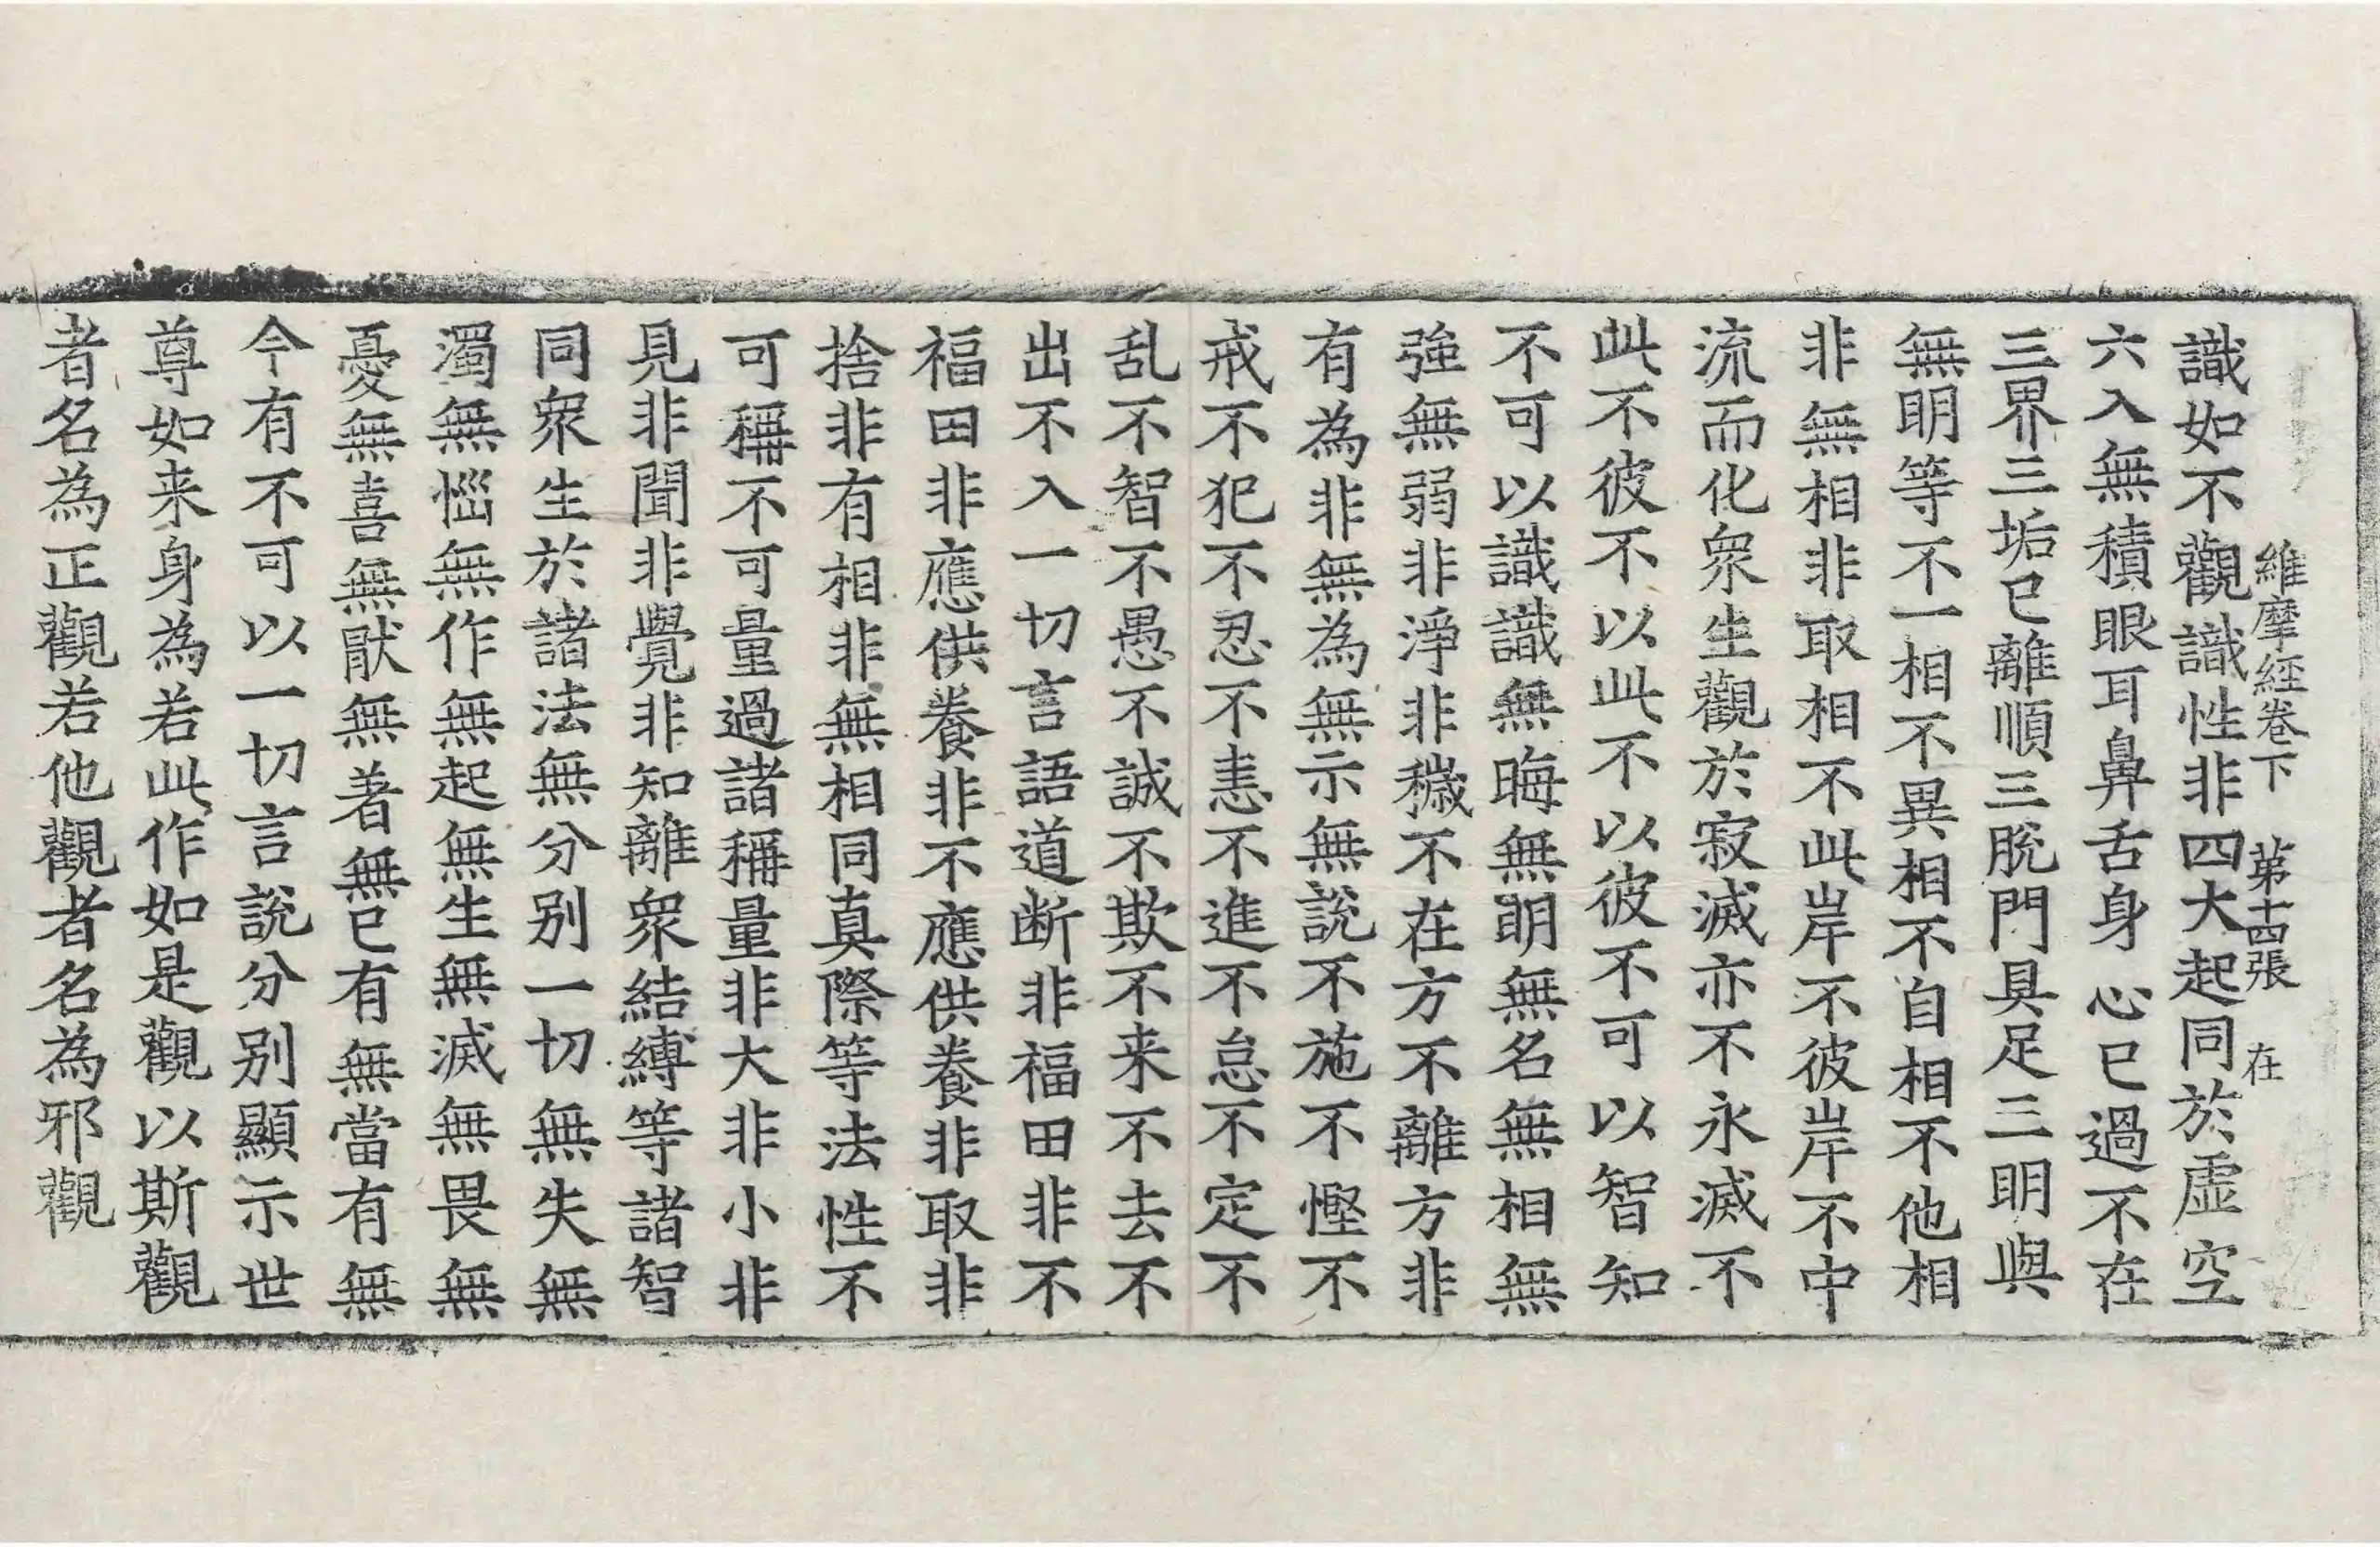 維摩経卷下　第十四張　在
識如不觀識性非四大起同於虛空
六入無積眼耳鼻舌身心已過不在
三界三垢已離順三脫門具足三明與
無明等不一相不異相不自相不他相
非無相非取相不此岸不彼岸不中
流而化衆生觀於寂滅亦不永滅不
此不彼不以此不以彼不可以智知
不可以識識無晦無明無名無相無
強無弱非淨非穢不在方不離方非
有為非無為無示無說不施不慳不
戒不犯不忍不恚不進不怠不定不
乱不智不愚不誠不欺不来不去不
出不入一切言語道断非福田非不
福田非應供養非不應供養非取非
捨非有相非無相同真際等法性不
可稱不可量過諸稱量非大非小非
見非聞非覺非知離衆結縛等諸智
同衆生於諸法無分別一切無失無
濁無惱無作無起無生無滅無畏無
憂無喜無猒無著無已有無當有無
今有不可以一切言說分別顯示世
尊如来身為若此作如是觀以斯觀
者名為正觀若他觀者名為邪觀